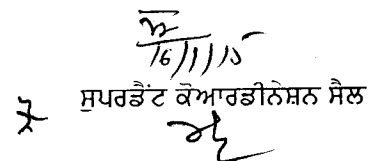 16/1/15
ਸੁਪਰਡੈਂਟ ਕੋਆਰਡੀਨੇਸ਼ਨ ਸੈਲ